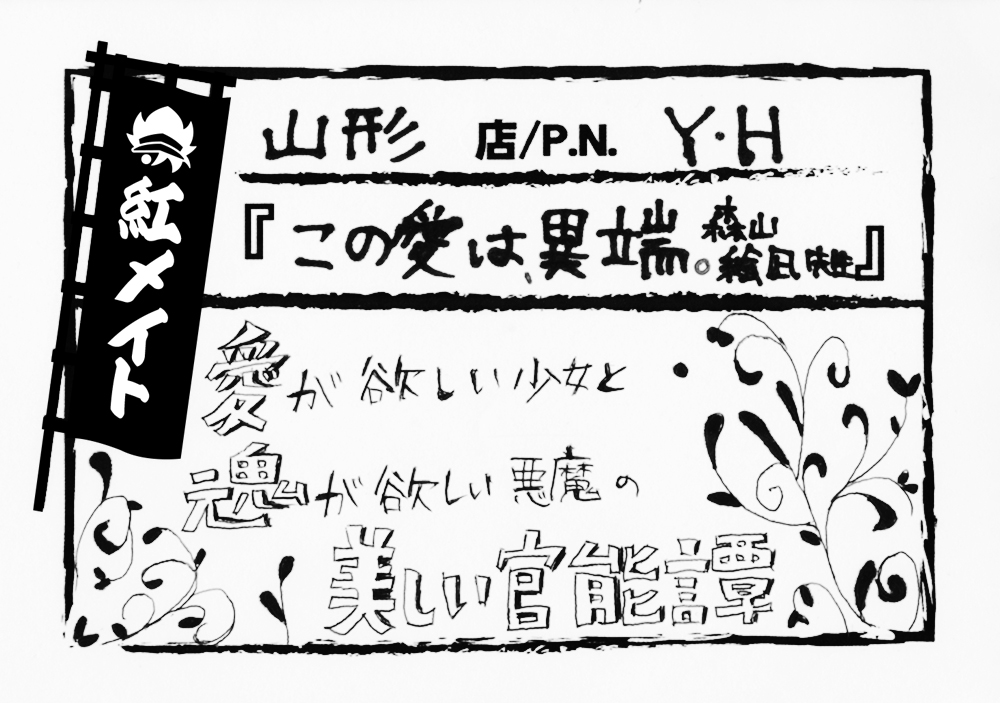 紅メイト
山形 店/P.N. Y・H
『この愛は、異端。森山絵凪』
愛が欲しい少女と
魂が欲しい悪魔の
美しい官能譚